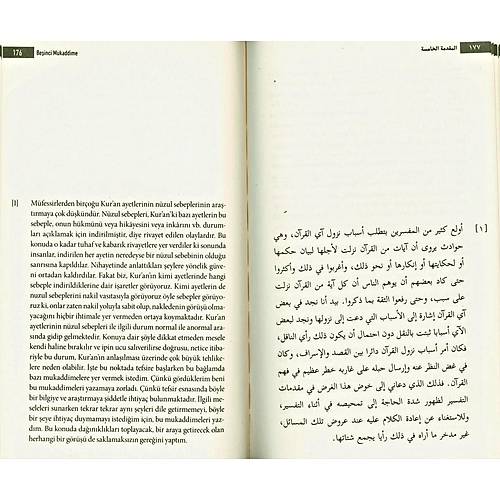 176
Beşinci Mukaddime
[1]
Müfessirlerden birçoğu Kur'an ayetlerinin nüzul sebeplerinin araş-
tırmaya çok düşkündür. Nüzul sebepleri, Kur'an'ki bazı ayetlerin bu
sebeple, onun hükmünü veya hikâyesini veya inkârını vb. durum-
ları açıklamak için indirilmiştir, diye rivayet edilen olaylardır. Bu
konuda o kadar tuhaf ve kabarık rivayetlere yer verdiler ki sonunda
insanlar, indirilen her ayetin neredeyse bir nüzul sebebinin olduğu
sanrısına kapıldılar. Nihayetinde anlattıkları şeylere yönelik güve-
ni ortadan kaldırdılar. Fakat biz, Kur'an'ın kimi ayetlerinde hangi
sebeple indirildiklerine dair işaretler görüyoruz. Kimi ayetlerin de
nüzul sebeplerini nakil vasıtasıyla görüyoruz öyle sebepler görüyo-
ruz ki, onlar zaten nakil yoluyla sabit olup, nakledenin görüşü olma-
yacağını hiçbir ihtimale yer vermeden ortaya koymaktadır. Kur'an
ayetlerinin nüzul sebepleri ile ilgili durum normal ile anormal ara-
sında gidip gelmektedir. Konuya dair şöyle dikkat etmeden mesele
kendi haline bırakılır ve ipin ucu salıverilirse doğrusu, netice itiba-
riyle bu durum, Kur'an'ın anlaşılması üzerinde çok büyük tehlike-
lere neden olabilir. İşte bu noktada tefsire başlarken bu bağlamda
bazı mukaddimelere yer vermek istedim. Çünkü gördüklerim beni
bu mukaddimeleri yazamaya zorladı. Çünkü tefsir esnasında böyle
bir bilgiye ve araştırmaya şiddetle ihtiyaç bulunmaktadır. İlgili me-
seleleri sunarken tekrar tekrar aynı şeyleri dile getirmemeyi, böyle
bir şeye ihtiyaç duymamayı istediğim için, bu mukaddimeleri yaz-
dım. Bu konuda dağınıklıkları toplayacak, bir araya getirecek olan
herhangi bir görüşü de saklamaksızın gereğini yaptım.
١٧٧
المقدمة الخامسة
[١]
أولع كثير من المفسرين بتطلب أسباب نزول آي القرآن، وهي
حوادث يروى أن آيات من القرآن نزلت لأجلها لبيان حكمها
أو لحكايتها أو إنكارها أو نحو ذلك، وأغربوا في ذلك وأكثروا
حتى كاد بعضهم أن يوهم الناس أن كل آية من القرآن نزلت
على سبب، وحتى رفعوا الثقة بما ذكروا. بيد أنا نجد في بعض
آي القرآن إشارة إلى الأسباب التي دعت إلى نزولها ونجد لبعض
الآي أسبابا ثبتت بالنقل دون احتمال أن يكون ذلك رأي الناقل،
فكان أمر أسباب نزول القرآن دائرا بين القصد والإسراف، وكان
في غض النظر عنه وإرسال حبله على غاربه خطر عظيم في فهم
القرآن. فذلك الذي دعاني إلى خوض هذا الغرض في مقدمات
التفسير لظهور شدة الحاجة إلى تمحيصه في أثناء التفسير،
وللاستغناء عن إعادة الكلام عليه عند عروض تلك المسائل،
غير مدخر ما أراه في ذلك رأيا يجمع شتاتها.